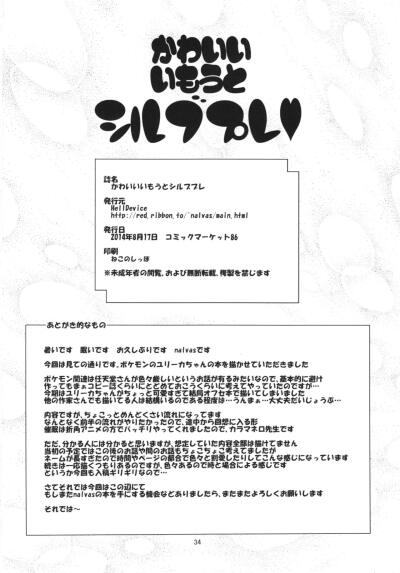 かわいい
いもうと
シルブプレ♥
誌名
かわいいいもうとシルブプレ
発行元
HellDevice
http://red.ribbon.to/~nalvas/main.html
発行日
2014年8月17日 コミックマーケット86
印刷
ねこのしっぽ
※未成年者の閲覧、および無断転載、複製を禁じます
あとがき的なもの
暑いです 眠いです お久しぶりです nalvasです
今回は見ての通りです、ポケモンのユリーカちゃんの本を描かせていただきました
ポケモン関連は任天堂さんが色々厳しいというお話が有るみたいなので、基本的に避け
作ってもまぁコピー誌くらいにとどめておこうくらいに考えてやっていたのですが…
今期はユリーカちゃんがちょっと可愛すぎて結局オフセ本で描いてしまいました
他の作家さんでも描いてる人は結構いるのである程度は…うんまぁ…大丈夫だいじょうぶ…
内容ですが、ちょこっとめんどくさい流れになってます
なんとなく前半の流れがやりたかったので、途中から回想に入る形
催眠は折角アニメの方でバッチリやってくれましたので、カラマネロ先生です
ただ、分かる人には分かると思いますが、想定していた内容全部は描けてません
当初の予定ではこの後のお話や間のお話もちょこちょこ考えてましたが
ネームが長すぎたので時間やページの都合で色々と割愛したりしてこんな感じになっています
続きは一応描くつもりあるのですが、色々あるので時と場合による感じです
というか今回も入稿ギリギリなので…
さてそれでは今回はこの辺にて
もしまたnalvasの本を手にする機会などありましたら、またまたよろしくお願いします
それでは～
34